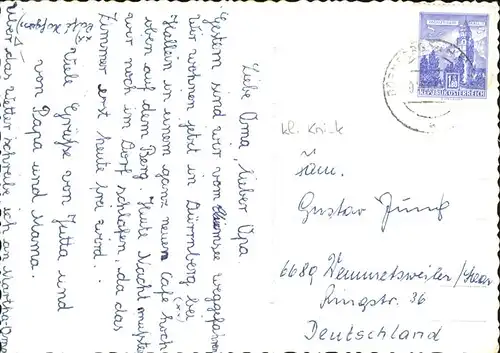 Liebe Oma, lieber Opa.
Gestern sind wir vom weggefahren
Wir wohnen jetzt in Dürrnberg bei
Hallein in einem ganz neuen Café hoch
oben auf dem Berg. Heute Nacht mußten
wir noch im Dorf schlafen, da das
Zimmer erst heute frei wird.
Viele Grüße von Jutta und
von Papa und Mama.
Über das Wetter schreibe ich an Martha-Oma
REPUBLIK ÖSTERREICH
kl. Knick
Fam.
Gustav Jung
6689 Wemmetsweiler/Saar
Ringstr. 36
Deutschland